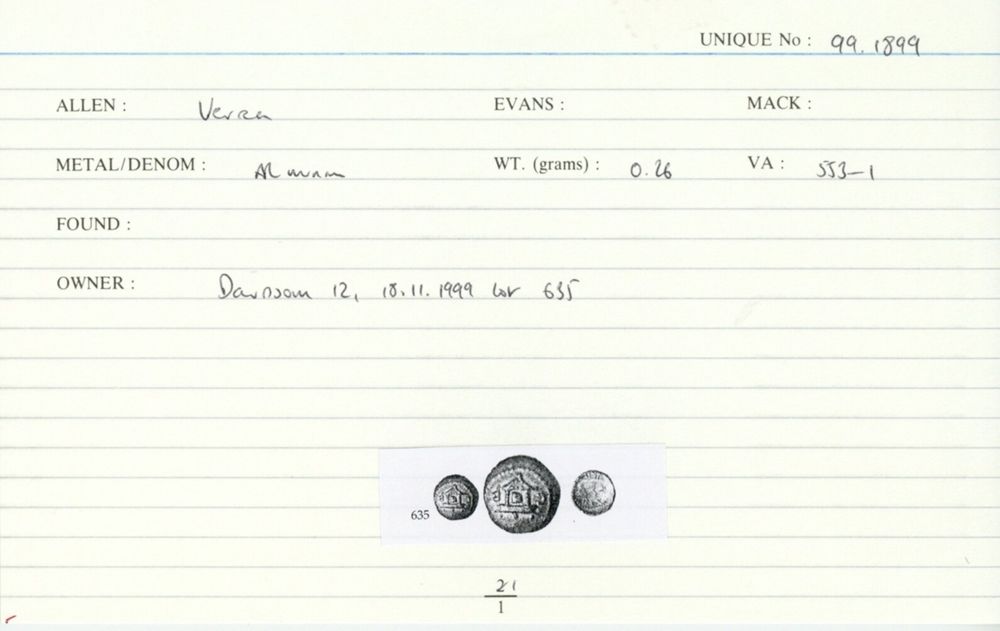 UNIQUE No : 99.1899
ALLEN : Verica EVANS : MACK :
METAL/DENOM : AR WT. (grams) : 0.26 VA : 553-1
FOUND :
OWNER : Davissons 12, 18.11.1999 lot 635
635
21
1